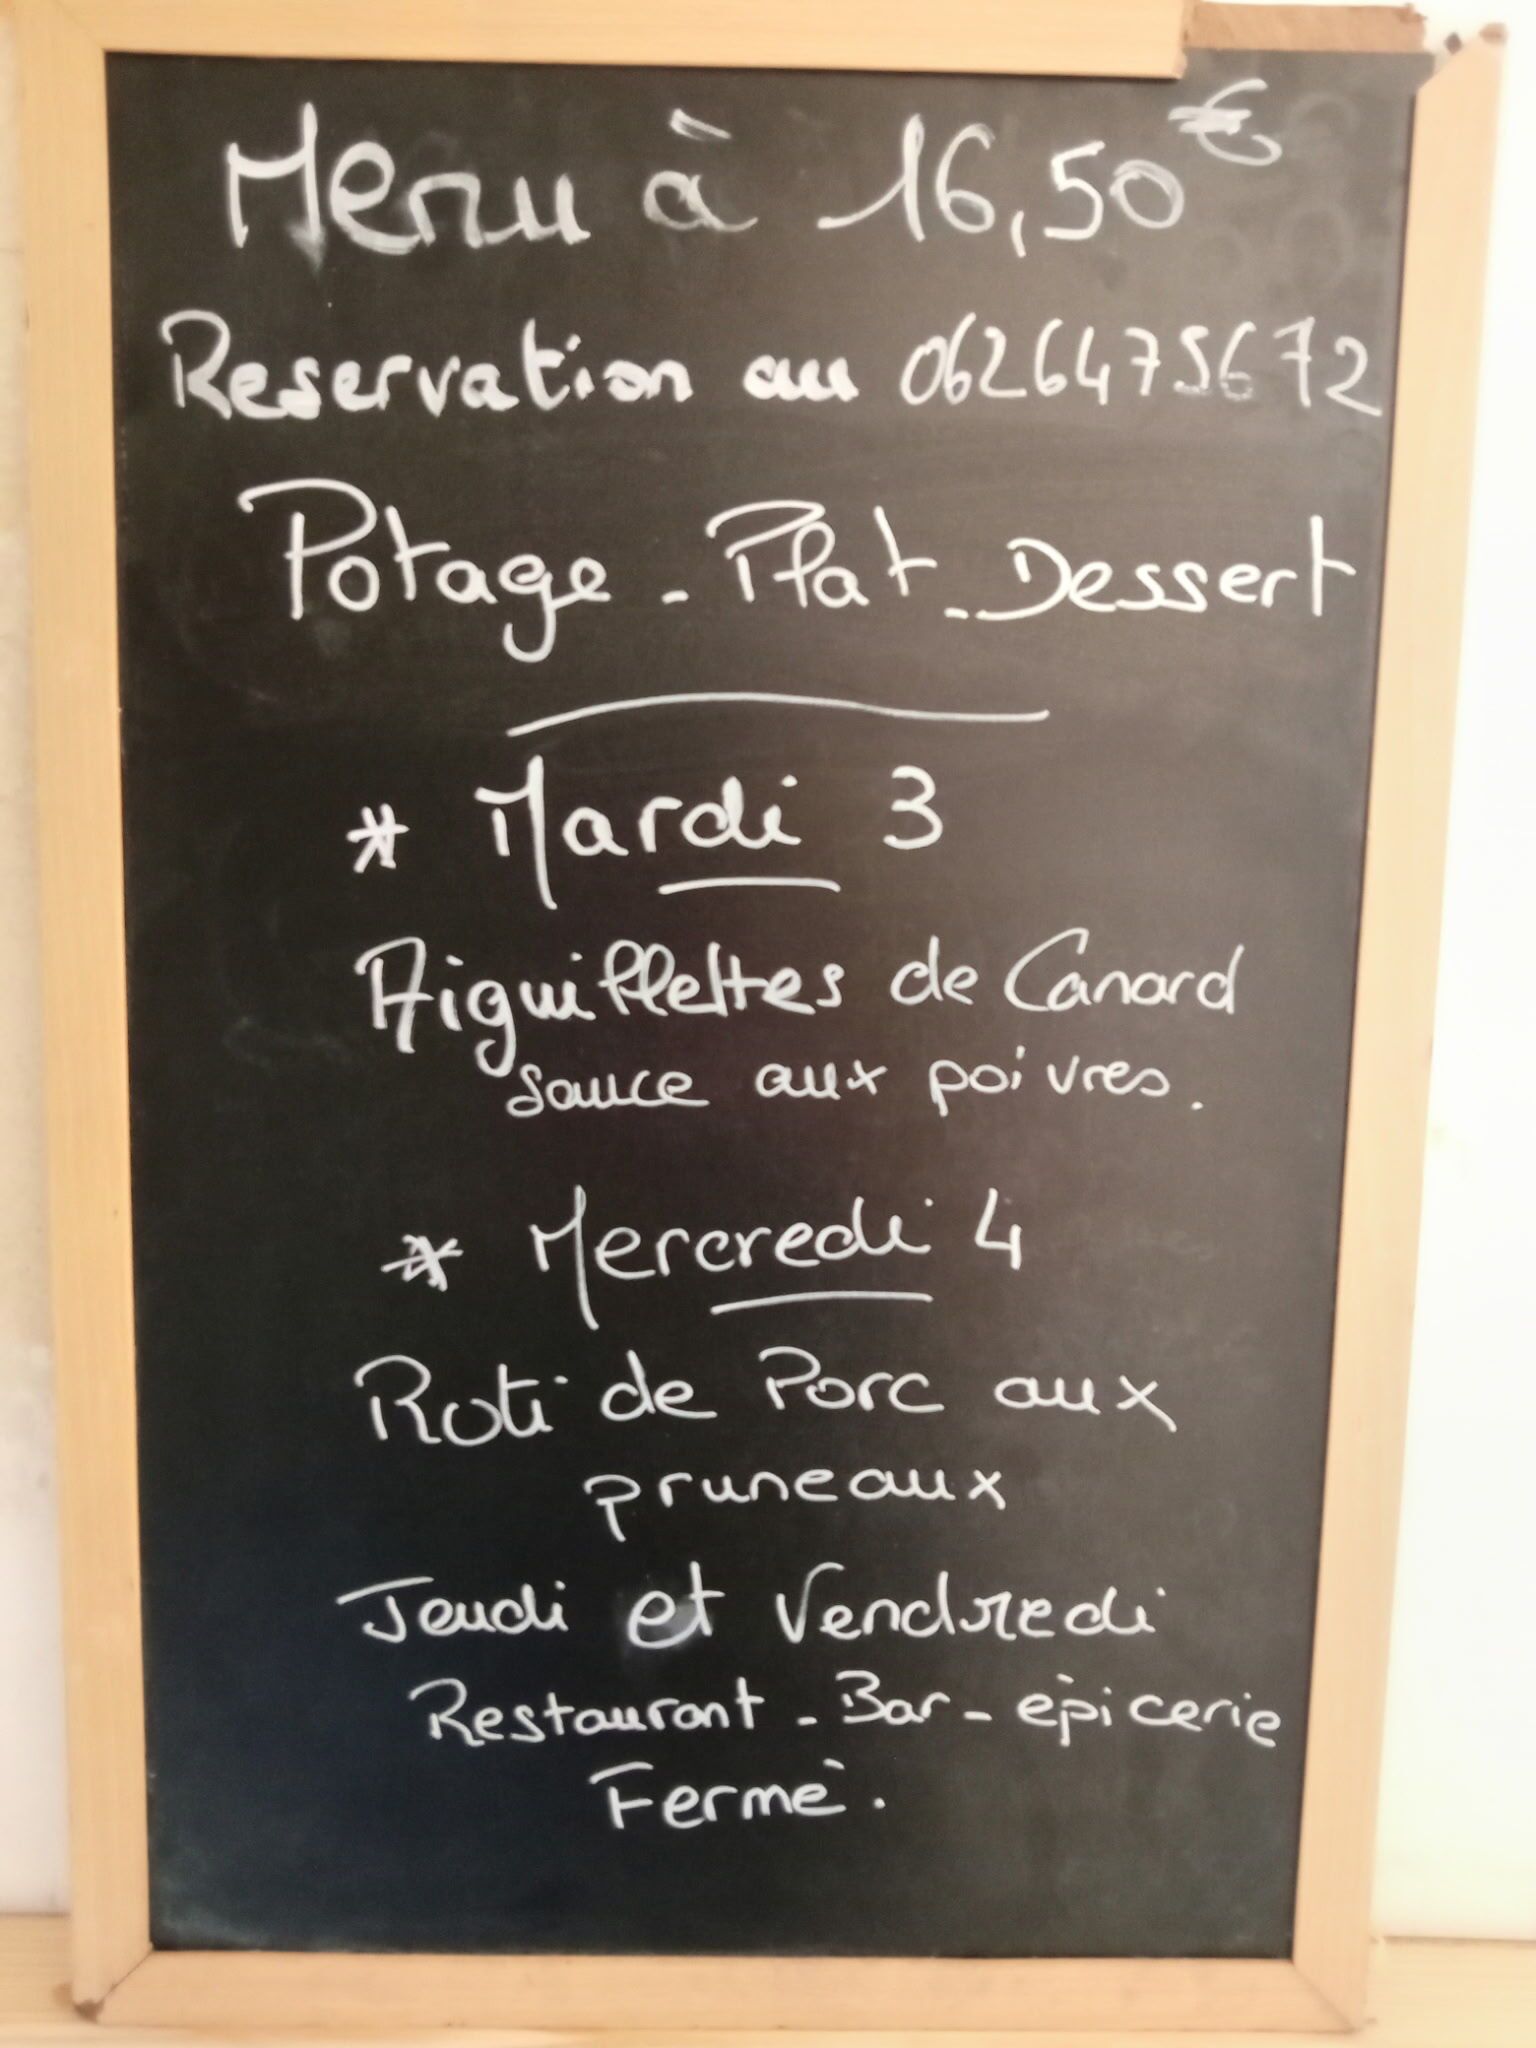 Menu à 16,50€
Reservation au 0626475672
Potage - Plat - Dessert
* Mardi 3
Aiguillettes de Canard
sauce aux poivres.
* Mercredi 4
Roti de Porc aux
pruneaux
Jeudi et Vendredi
Restaurant - Bar - épicerie
Fermé.